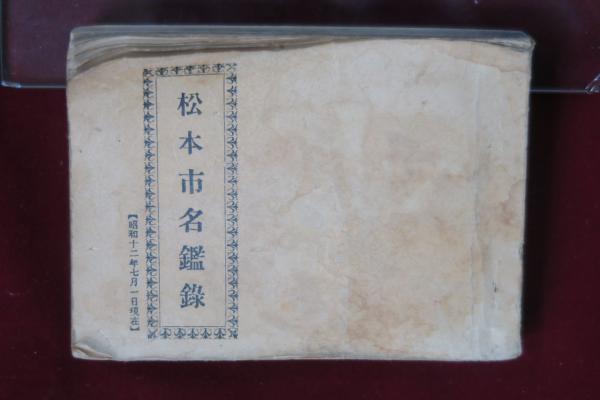 松本市名鑑錄
【昭和十二年七月一日現在】